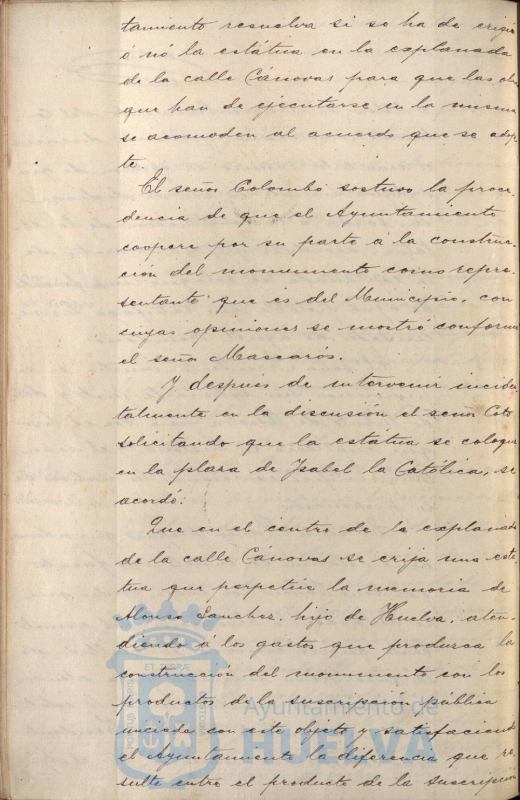 tamiento resuelva si se ha de erigir
ó nó la estátua en la explanada
de la calle Cánovas para que las obras
que han de ejecutarse en la misma
se acomoden al acuerdo que se adop-
te.
El señor Colombo sostuvo la proce-
dencia de que el Ayuntamiento
coopere por su parte á la construc-
ción del monumento como repre-
sentante que es del Municipio, con
cuyas opiniones se mostró conforme
el señor Mascarós.
Y despues de intervenir inciden-
talmente en la discusión el señor Coto
solicitando que la estátua se coloque
en la plaza de Isabel la Católica, se
acordó:
Que en el centro de la explanada
de la calle Cánovas se erija una está-
tua que perpetúe la memoria de
Alonso Sanchez, hijo de Huelva, aten-
diendo á los gastos que produzca la
construcción del monumento con los
productos de la suscripción pública
iniciada con este objeto y satisfaciendo
el Ayuntamiento la diferencia que re-
sulte entre el producto de la suscripción
Ayuntamiento de
HUELVA